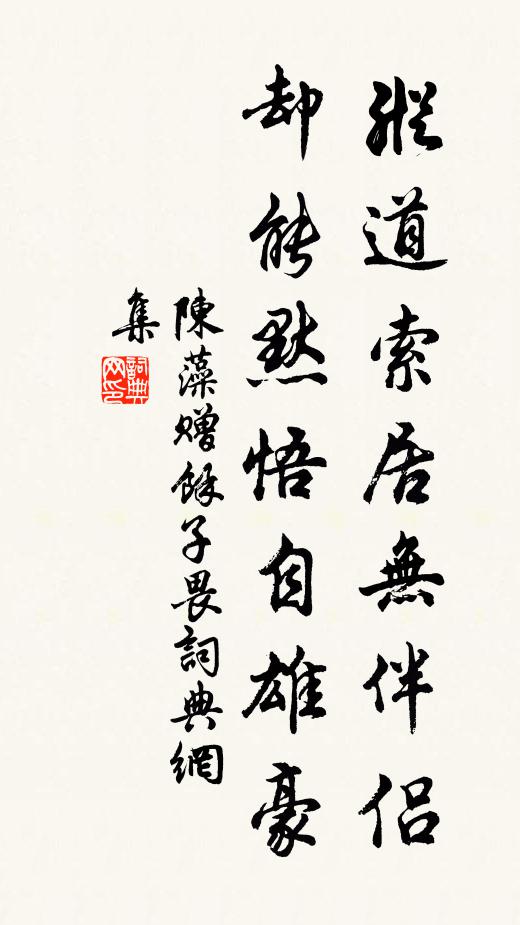 縱道索居無伴侶
却能默悟自雄豪
陳藻贈餘子畏詞典網
集
詞典网印